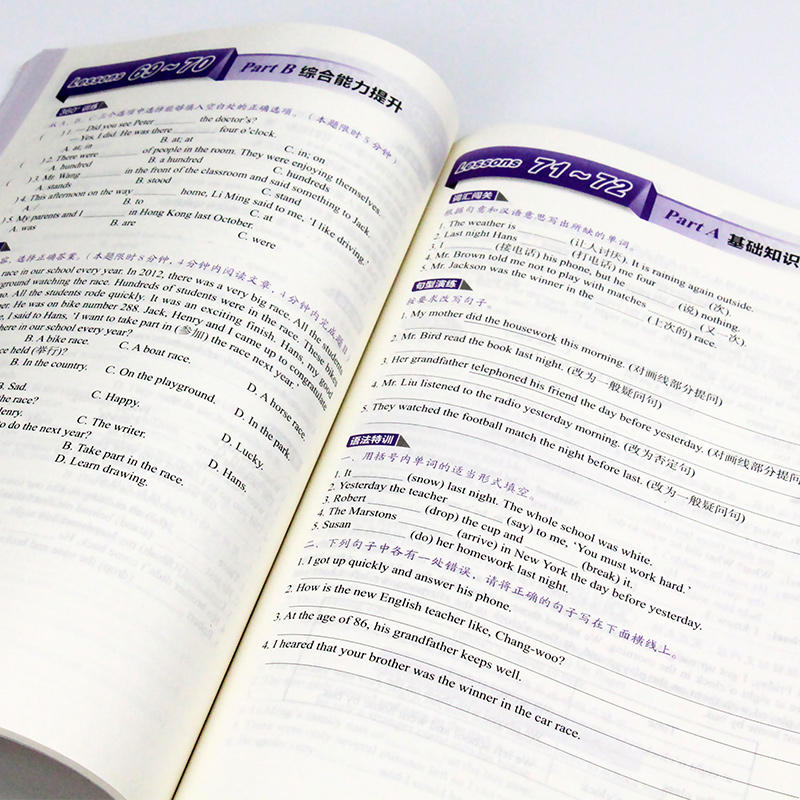 Lessons 69~70 Part B 综合能力提升
360°训练
从A、B、C三个选项中选择能够填入空白处的正确选项。（本题限时5分钟）
( ) 1. — Did you see Peter ______ the doctor's?
— Yes, I did. He was there ______ four o'clock.
A. at; in B. at; at C. in; on
( ) 2. There were ______ of people in the room. They were enjoying themselves.
A. hundred B. a hundred C. hundreds
( ) 3. Mr. Wang ______ in the front of the classroom and said something to Jack.
A. stands B. stood C. stand
( ) 4. This afternoon on the way ______ home, Li Ming said to me, 'I like driving.'
A. / B. to C. at
5. My parents and I ______ in Hong Kong last October.
A. was B. are C. were
选择正确答案。（本题限时8分钟，4分钟内阅读文章，4分钟内完成题目）
race in our school every year. In 2012, there was a very big race. All the students
ground watching the race. Hundreds of students were in the race. These bikes
o. All the students rode quickly. It was an exciting finish. Hans, my good
er. He was on bike number 288. Jack, Henry and I came up to congratulate
e, I said to Hans, 'I want to take part in (参加) the race next year.'
here in our school every year?
B. A bike race. C. A boat race. D. A horse race.
ace held (举行)?
B. In the country. C. On the playground. D. In the park.
B. Sad. C. Happy. D. Lucky.
the race?
Henry. C. The writer. D. Hans.
to do the next year?
B. Take part in the race.
D. Learn drawing.
Lessons 71~72 Part A 基础知识
词汇闯关
根据句意和汉语意思写出所缺的单词。
1. The weather is ______ (让人讨厌). It is raining again outside.
2. Last night Hans ______ (打电话) me four ______ (次).
3. I ______ (接电话) his phone, but he ______ (说) nothing.
4. Mr. Brown told me not to play with matches ______ (又一次).
5. Mr. Jackson was the winner in the ______ (上次的) race.
句型演练
按要求改写句子。
1. My mother did the housework this morning. (对画线部分提问)
2. Mr. Bird read the book last night. (改为一般疑问句)
3. Her grandfather telephoned his friend the day before yesterday. (对画线部分提问
4. Mr. Liu listened to the radio yesterday morning. (改为否定句)
5. They watched the football match the night before last. (改为一般疑问句)
语法特训
一、用括号内单词的适当形式填空。
1. It ______ (snow) last night. The whole school was white.
2. Yesterday the teacher ______ (say) to me, 'You must work hard.'
3. Robert ______ (drop) the cup and ______ (break) it.
4. The Marstons ______ (arrive) in New York the day before yesterday.
5. Susan ______ (do) her homework last night.
二、下列句子中各有一处错误，请将正确的句子写在下面横线上。
1. I got up quickly and answer his phone.
2. How is the new English teacher like, Chang-woo?
3. At the age of 86, his grandfather keeps well.
4. I heared that your brother was the winner in the car race.